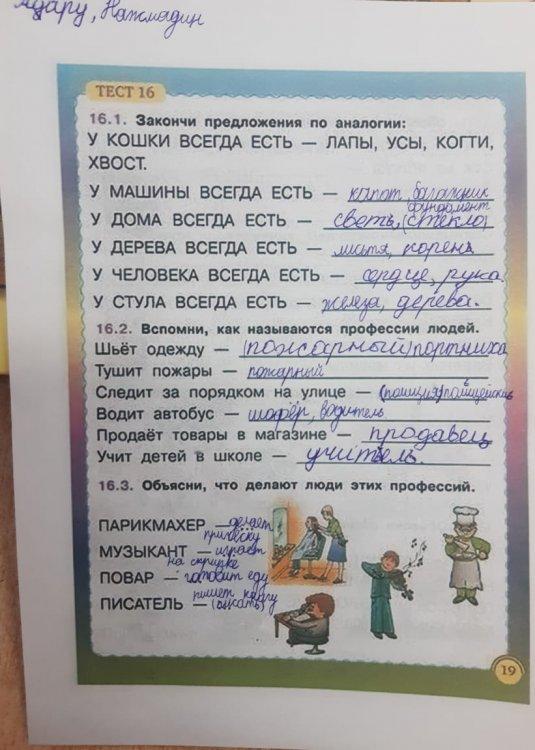 Адару, Нажмадин
ТЕСТ 16
16.1. Закончи предложения по аналогии:
У КОШКИ ВСЕГДА ЕСТЬ — ЛАПЫ, УСЫ, КОГТИ,
ХВОСТ.
У МАШИНЫ ВСЕГДА ЕСТЬ — капот, багажник
фундамент
У ДОМА ВСЕГДА ЕСТЬ — светь, (стекло)
У ДЕРЕВА ВСЕГДА ЕСТЬ — листя, корень
У ЧЕЛОВЕКА ВСЕГДА ЕСТЬ — сердце, рука
У СТУЛА ВСЕГДА ЕСТЬ — железа, дерева.
16.2. Вспомни, как называются профессии людей.
Шьёт одежду — (пожарный) портниха
Тушит пожары — пожарный
Следит за порядком на улице — (полиция) полицейский
Водит автобус — шофёр, водитель
Продаёт товары в магазине — продавец
Учит детей в школе — учитель.
16.3. Объясни, что делают люди этих профессий.
ПАРИКМАХЕР — делает
причёску
МУЗЫКАНТ — играет
на скрипке
ПОВАР — готовит еду
пишет книгу
ПИСАТЕЛЬ — (писать)
19